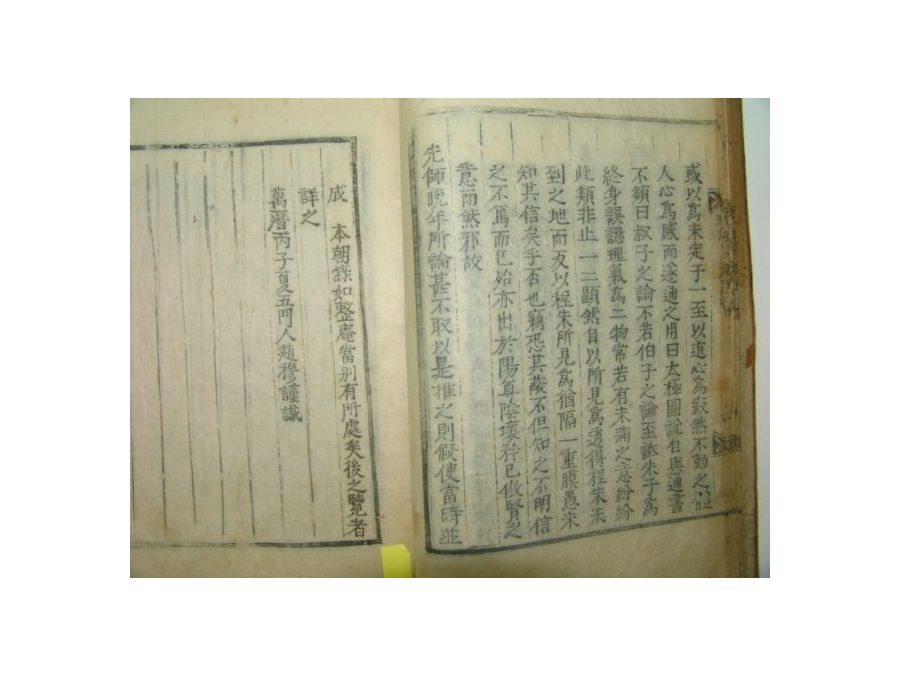 或以爲未定于一至以道心爲寂然不動之體
人心爲感而遂通之用曰太極圖說自與通書
不類曰叔子之論不若伯子之論至詆朱子爲
終身誤認理氣爲二物常若有未滿之意紛紛
此類非止一二顯然自以所見爲透得程朱未
到之地而反以程朱所見爲猶隔一重膜愚未
知其信矣乎否也竊恐其蔽不但知之不明信
之不篤而已殆亦出於陽尊陰壞矜己傲賢之
意而然邪故
先師晩年所論甚不取以是推之則假使當時並
成 本朝錄如整庵當別有所處矣後之覽者
詳之
萬曆丙子夏五門人趙穆謹識